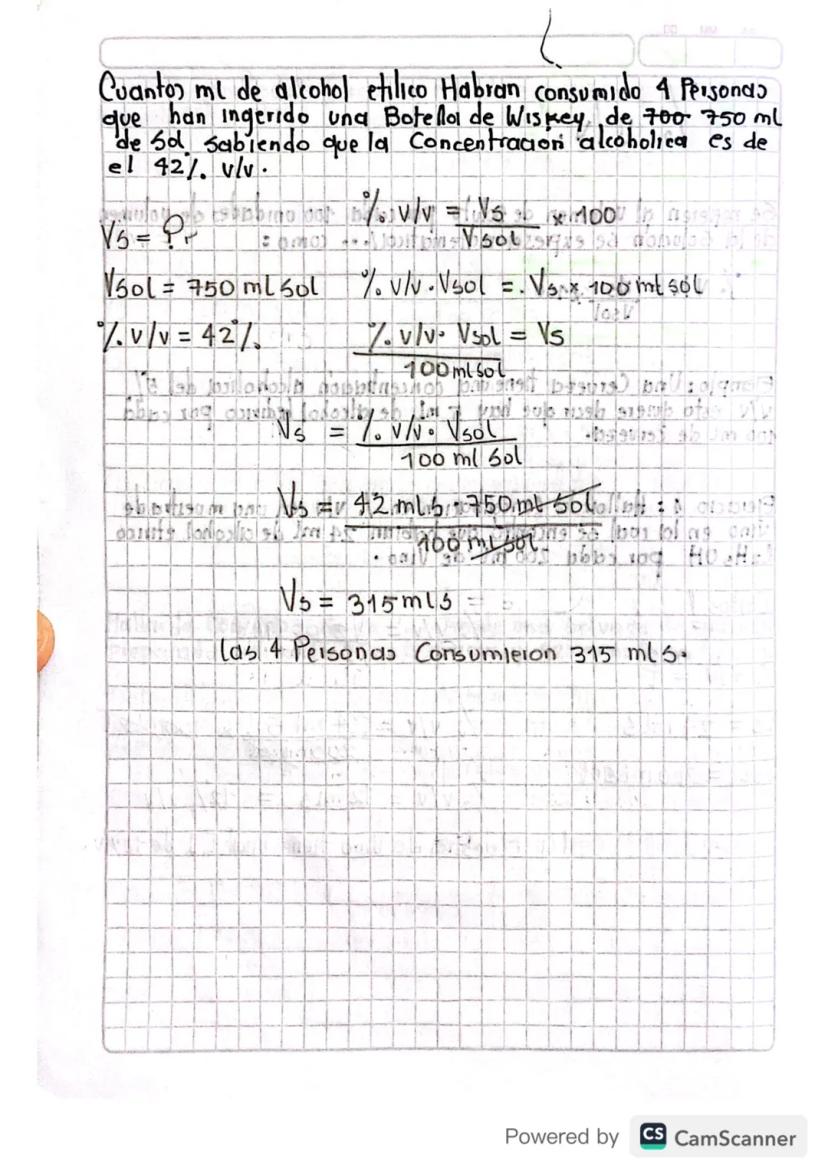 Cuantos ml de alcohol etilico Habran consumido 4 Personas
que han ingerido una Botella de Wiskey de 700 750 ml
de Sol Sabiendo que la Concentracion alcoholica es de
el 42% v/v.
% v/v = Vs / Vsol x 100
Vs = ?
Vsol = 750 ml sol
% v/v · Vsol = Vs x 100 ml sol
% v/v = 42%
% v/v · Vsol / 100 ml sol = Vs
Vs = % v/v · Vsol / 100 ml sol
Vs = 42 ml s · 750 ml sol / 100 ml sol
Vs = 315 ml s
las 4 Personas Consumieron 315 ml s.
Powered by CS CamScanner